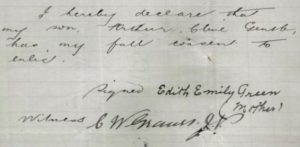 I hereby declare that
my son, Arthur Clive
has my full consent to
enlist.
Signed Edith Emily Green
(Mother)
Witness C W J.P.